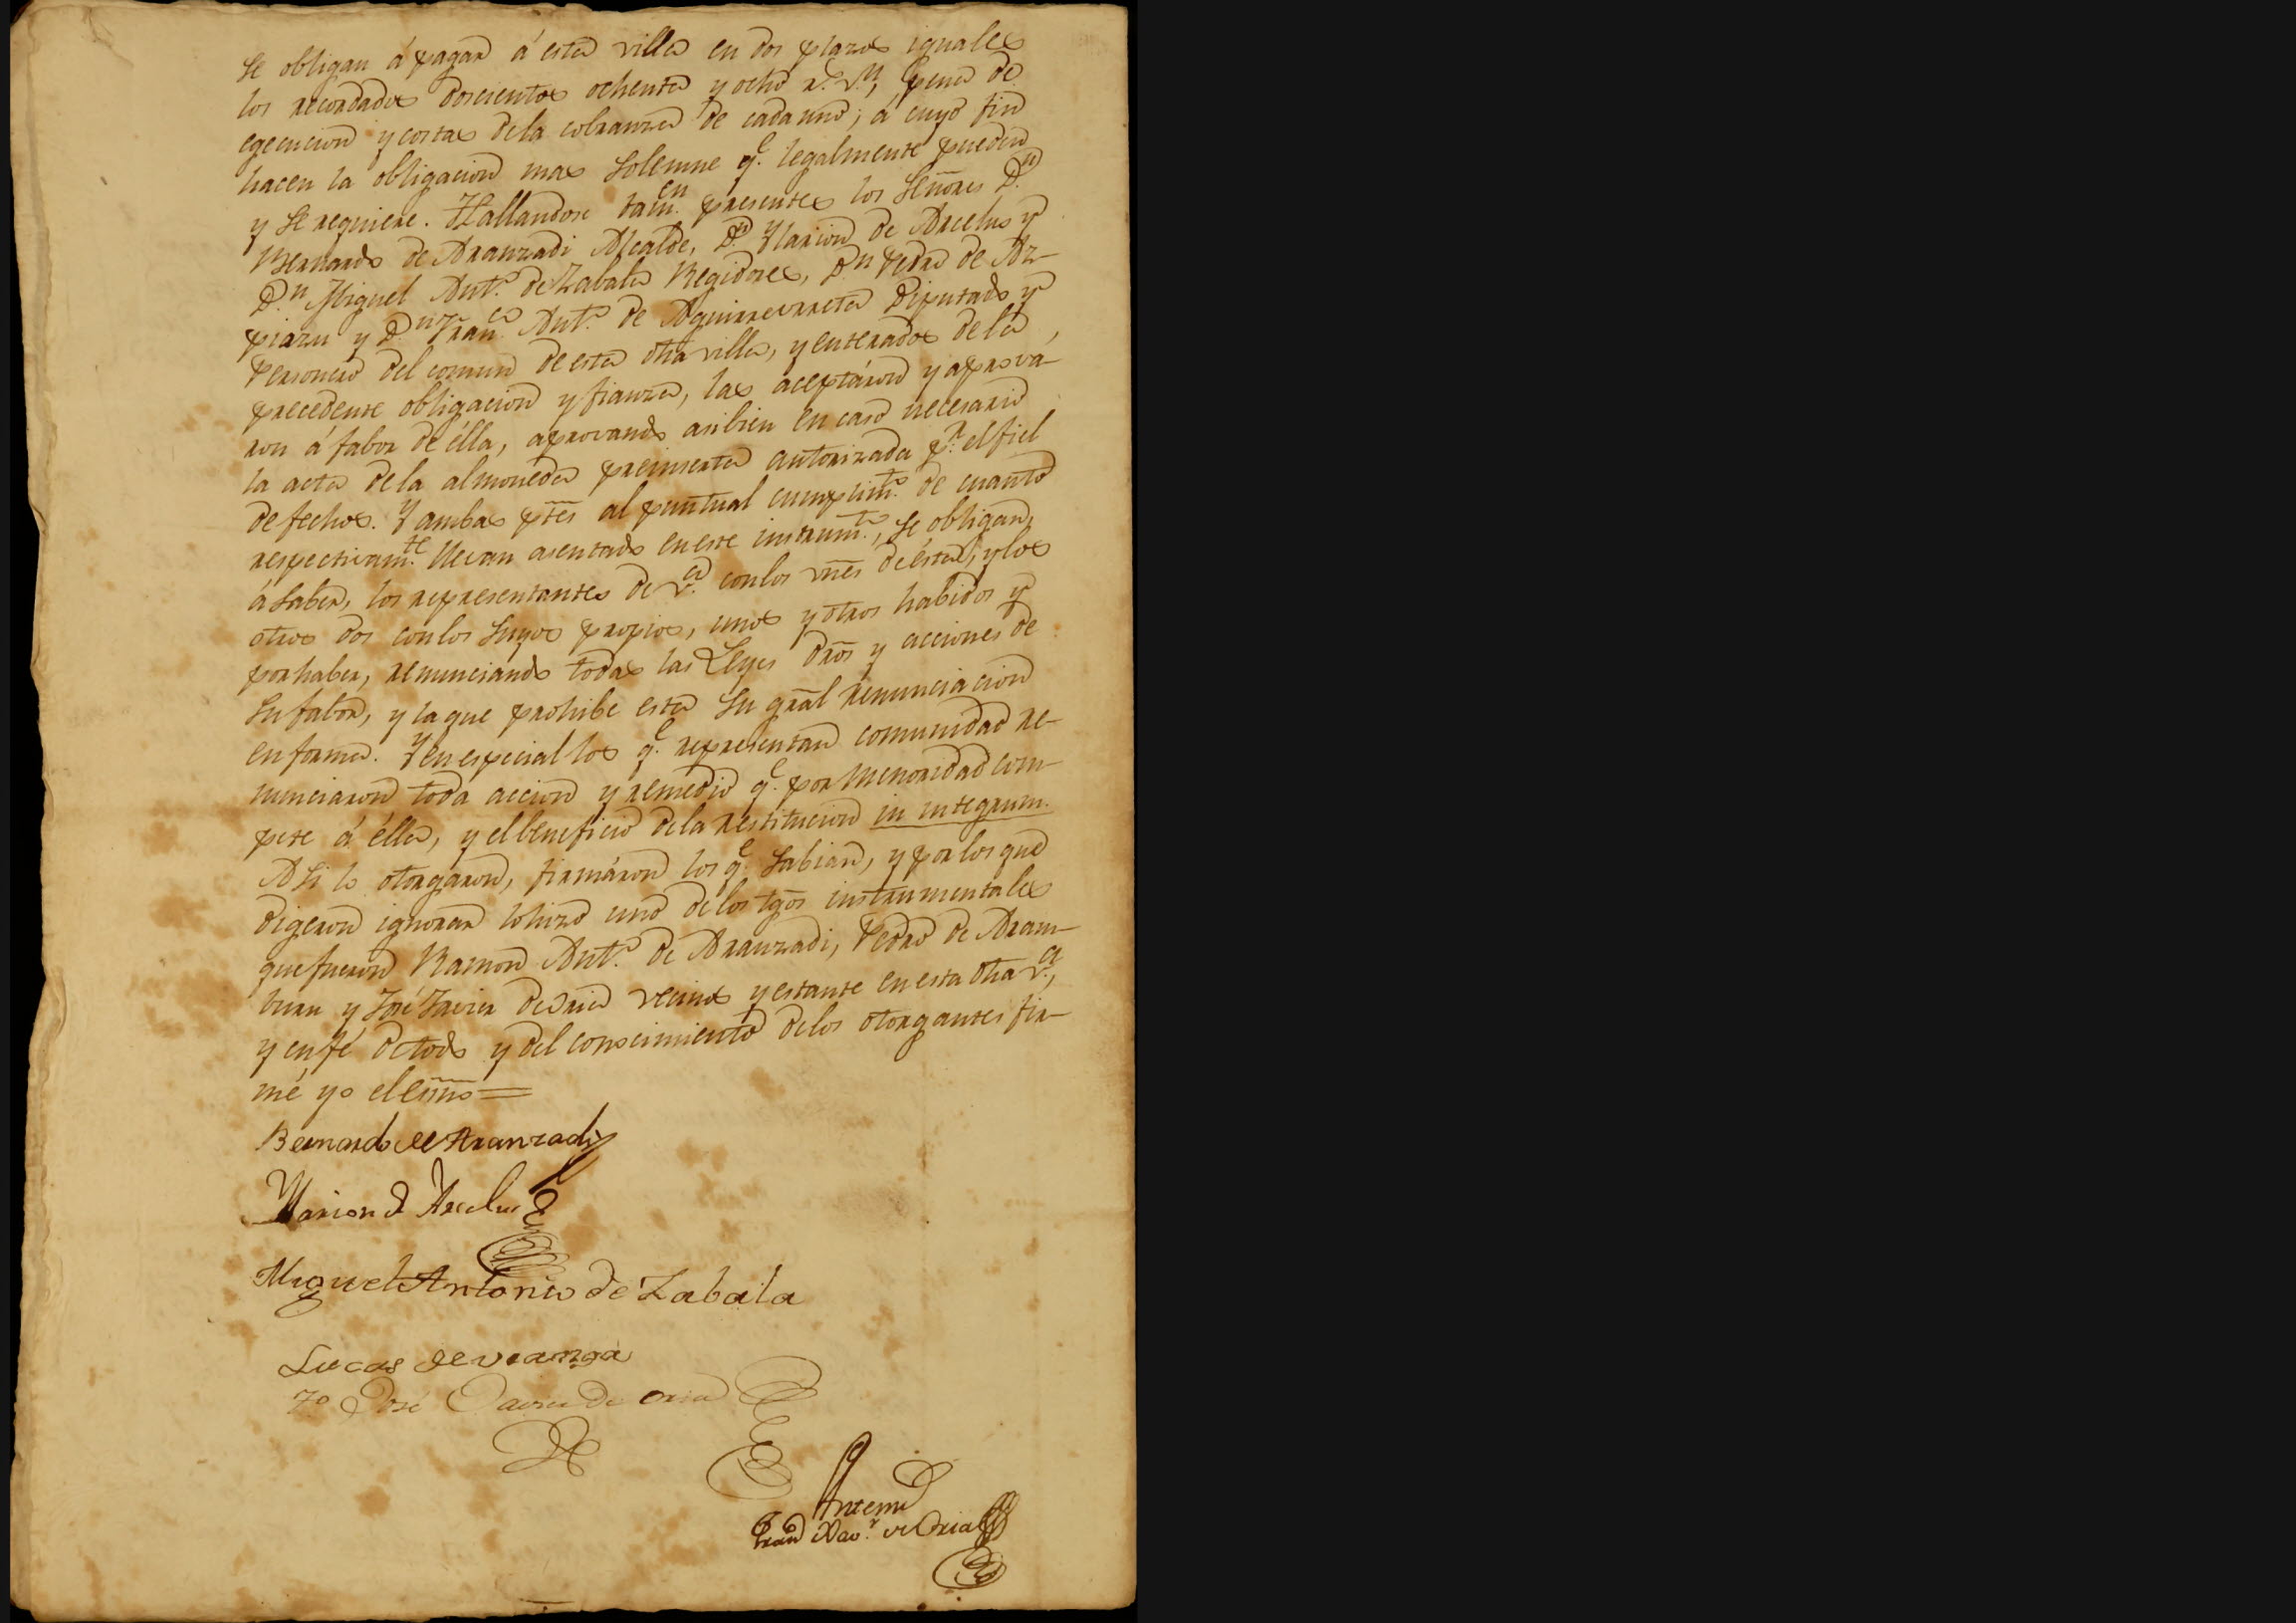 se obligan á pagar á esta villa en dos plazos iguales
los recordados doscientos ochenta y ocho r.ˢ v.ⁿ, pena de
egecucion y costas dela cobranza de cada uno; á cuyo fin
hacen la obligacion mas solemne q.ᵉ legalmente pueden
y se requiere. Hallandose tam.ᵉⁿ presentes los Señores D.ⁿ
Bernardo de Aranzadi Alcalde, D.ⁿ Ylarion de Arcelus y
D.ⁿ Miguel Ant.º de Zabala Regidores, D.ⁿ Pedro de Az-
piazu y D.ⁿ Fran.ᶜᵒ Ant.º de Aguirreurreta Diputado y
Personero del comun de esta dha villa, y enterados de la
precedente obligacion y fianza, las aceptáron y aprová-
ron á fabor de élla, aprovando asibien en caso necesario
la acta dela almoneda preinserta autorizada p.ʳ el fiel
de fechos. Y ambas ptes al puntual cumplim.ᵗᵒ de cuanto
respectivam.ᵗᵉ llevan asentado en este instrum.ᵗᵒ, se obligan,
á saber, los representantes de v.ᵃ con los vnes de ésta, y los
otros dos con los suyos propios, unos y otros habidos y
por haber, renunciando todas las Leyes dros y acciones de
su fabor, y la que prohibe esta su gral renunciacion
en forma. Y en especial los q.ᵉ representan comunidad re-
nunciaron toda accion y remedio q.ᵉ por menoridad com-
pete á élla, y el beneficio dela restitucion in integrum.
Asi lo otorgaron, firmáron los q.ᵉ sabian, y por los que
digeron ignorar lo hizo uno delos tgos instrumentales
que fueron Ramon Ant.º de Aranzadi, Pedro de Aram-
buru y José Javier de Oria vecinos y estante en esta dha v.ᵃ,
y en fé de todo y del conocimiento delos otorgantes fir-
mé yo el essno=
Bernardo de Aranzadi
Ylarion de Arcelus
Miguel Antonio de Zabala
Lucas de uranga
Tº José Javier de Oria
Antemi
Fran Xav.ʳ de Oria